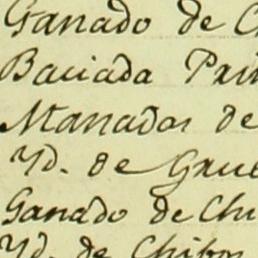 Ganado de C
Baciada Pri
Manados de
Yd. de Gau
Ganado de Chi
Yd. de Chibos